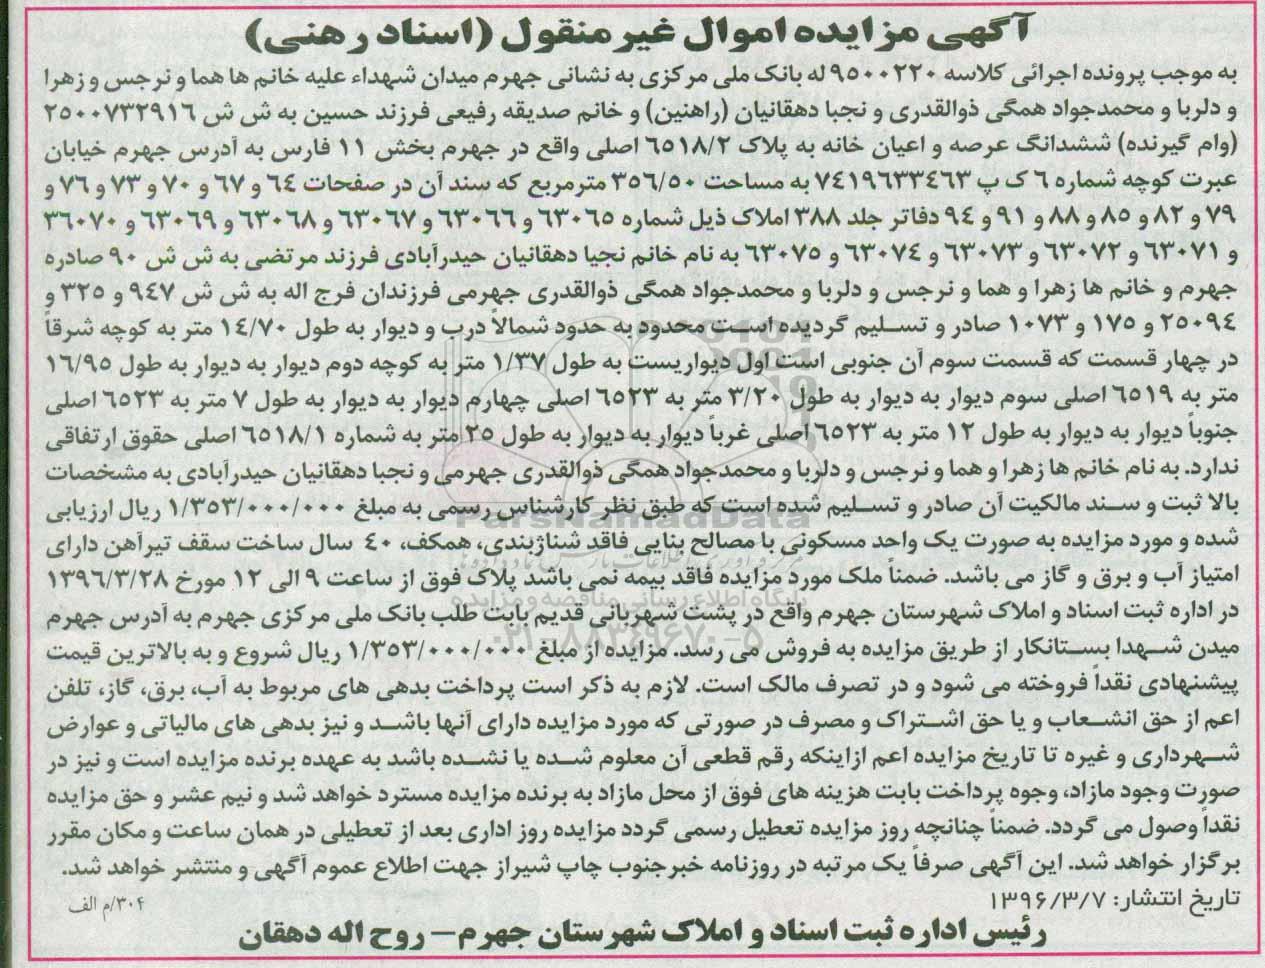 آگهی مزایده اموال غیر منقول (اسناد رهنی)
به موجب پرونده اجرائی کلاسه ۹۵۰۰۲۲۰ له بانک ملی مرکزی به نشانی جهرم میدان شهداء علیه خانم ها هما و نرجس و زهرا
و دلربا و محمدجواد همگی ذوالقدری و نجبا دهقانیان (راهنین) و خانم صدیقه رفیعی فرزند حسین به ش ش ۲۵۰۰۷۳۲۹۱۶
(وام گیرنده) ششدانگ عرصه و اعیان خانه به پلاک ۶۵۱۸/۲ اصلی واقع در جهرم بخش ۱۱ فارس به آدرس جهرم خیابان
عبرت کوچه شماره ۶ ک پ ۷۴۱۹۶۳۳۴۶۳ به مساحت ۳۵۶/۵۰ مترمربع که سند آن در صفحات ۶۴ و ۶۷ و ۷۰ و ۷۳ و ۷۶ و
۷۹ و ۸۲ و ۸۵ و ۸۸ و ۹۱ و ۹۴ دفاتر جلد ۳۸۸ املاک ذیل شماره ۶۳۰۶۵ و ۶۳۰۶۶ و ۶۳۰۶۷ و ۶۳۰۶۸ و ۶۳۰۶۹ و ۳۶۰۷۰
و ۶۳۰۷۱ و ۶۳۰۷۲ و ۶۳۰۷۳ و ۶۳۰۷۴ و ۶۳۰۷۵ به نام خانم نجبا دهقانیان حیدرآبادی فرزند مرتضی به ش ش ۹۰ صادره
جهرم و خانم ها زهرا و هما و نرجس و دلربا و محمدجواد همگی ذوالقدری جهرمی فرزندان فرج اله به ش ش ۹۴۷ و ۳۲۵ و
۲۵۰۹۴ و ۱۷۵ و ۱۰۷۳ صادر و تسلیم گردیده است محدود به حدود شمالاً درب و دیوار به طول ۱۴/۷۰ متر به کوچه شرقاً
در چهار قسمت که قسمت سوم آن جنوبی است اول دیواریست به طول ۱/۳۷ متر به کوچه دوم دیوار به دیوار به طول ۱۶/۹۵
متر به ۶۵۱۹ اصلی سوم دیوار به دیوار به طول ۳/۲۰ متر به ۶۵۲۳ اصلی چهارم دیوار به دیوار به طول ۷ متر به ۶۵۲۳ اصلی
جنوباً دیوار به دیوار به طول ۱۲ متر به ۶۵۲۳ اصلی غرباً دیوار به دیوار به طول ۲۵ متر به شماره ۶۵۱۸/۱ اصلی حقوق ارتفاقی
ندارد. به نام خانم ها زهرا و هما و نرجس و دلربا و محمدجواد همگی ذوالقدری جهرمی و نجبا دهقانیان حیدرآبادی به مشخصات
بالا ثبت و سند مالکیت آن صادر و تسلیم شده است که طبق نظر کارشناس رسمی به مبلغ ۱/۳۵۳/۰۰۰/۰۰۰ ریال ارزیابی
شده و مورد مزایده به صورت یک واحد مسکونی با مصالح بنایی فاقد شناژبندی، همکف، ۴۰ سال ساخت سقف تیرآهن دارای
امتیاز آب و برق و گاز می باشد. ضمناً ملک مورد مزایده فاقد بیمه نمی باشد پلاک فوق از ساعت ۹ الی ۱۲ مورخ ۱۳۹۶/۳/۲۸
در اداره ثبت اسناد و املاک شهرستان جهرم واقع در پشت شهربانی قدیم بابت طلب بانک ملی مرکزی جهرم به آدرس جهرم
میدن شهدا بستانکار از طریق مزایده به فروش می رسد. مزایده از مبلغ ۱/۳۵۳/۰۰۰/۰۰۰ ریال شروع و به بالاترین قیمت
پیشنهادی نقداً فروخته می شود و در تصرف مالک است. لازم به ذکر است پرداخت بدهی های مربوط به آب، برق، گاز، تلفن
اعم از حق انشعاب و یا حق اشتراک و مصرف در صورتی که مورد مزایده دارای آنها باشد و نیز بدهی های مالیاتی و عوارض
شهرداری و غیره تا تاریخ مزایده اعم ازاینکه رقم قطعی آن معلوم شده یا نشده باشد به عهده برنده مزایده است و نیز در
صورت وجود مازاد، وجوه پرداخت بابت هزینه های فوق از محل مازاد به برنده مزایده مسترد خواهد شد و نیم عشر و حق مزایده
نقداً وصول می گردد. ضمناً چنانچه روز مزایده تعطیل رسمی گردد مزایده روز اداری بعد از تعطیلی در همان ساعت و مکان مقرر
برگزار خواهد شد. این آگهی صرفاً یک مرتبه در روزنامه خبرجنوب چاپ شیراز جهت اطلاع عموم آگهی و منتشر خواهد شد.
تاریخ انتشار: ۱۳۹۶/۳/۷
۳۰۴/م الف
رئیس اداره ثبت اسناد و املاک شهرستان جهرم – روح اله دهقان
ParsNamadData
پایگاه اطلاع رسانی مناقصه و مزایده
۰۲۱-۸۸۳۴۹۶۷۰-۵